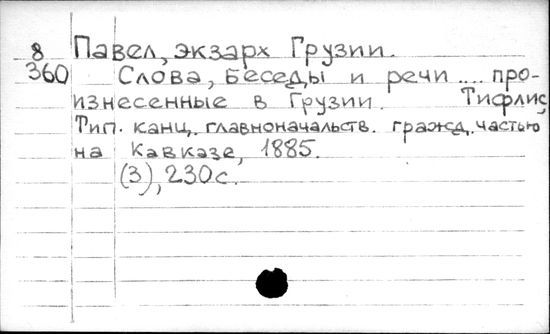 8 Павел, экзарх Грузии.
360 Слова, беседы и речи .... про-
изнесенные в Грузии. Тифлис,
Тип. канц. главноначальств. гражд. частью
на Кавказе, 1885.
(3), 230 с.